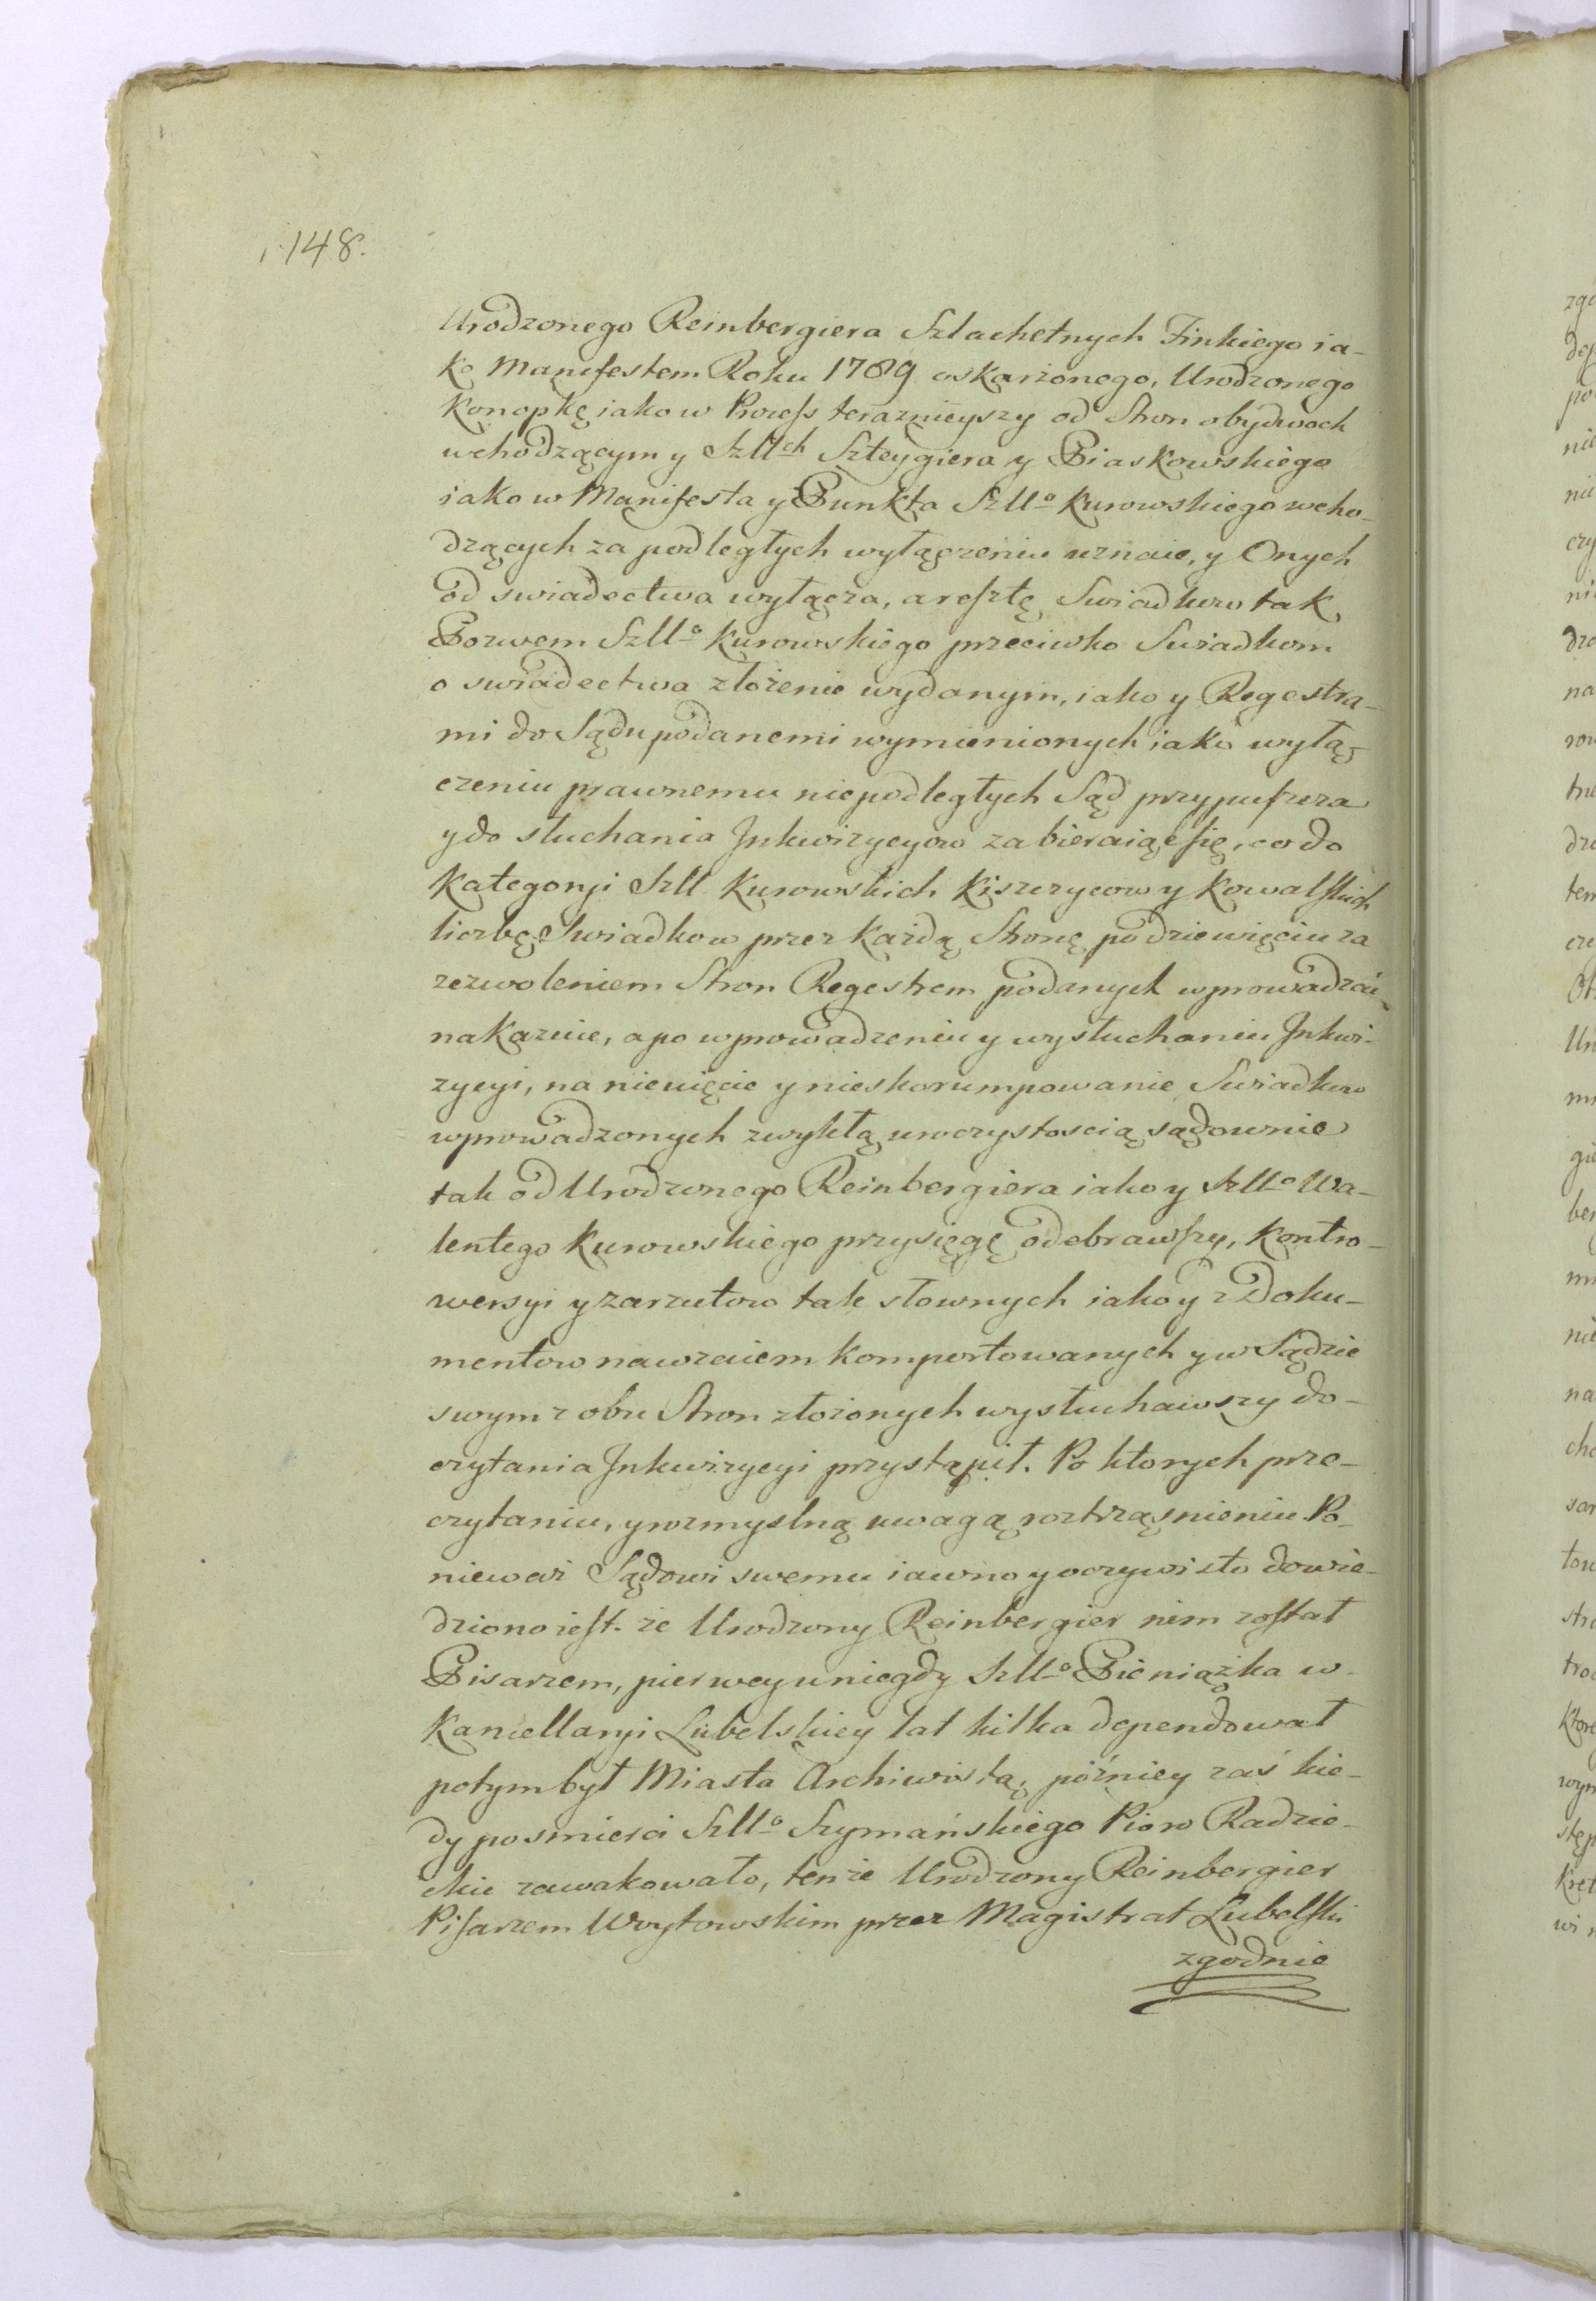 148.
Urodzonego Reinbergiera Szlachetnych Finkiego ia-
ko Manifestem Roku 1789 oskarżonego, Urodzonego
Konopkę iako w Process teraznieyszy od Stron obydwoch
wchodzącym y Szll^ch Szteygiera y Piaskowskiego
iako w Manifesta y Punkta Szll^o Kurowskiego wcho-
dzących za podległych wyłączeniu uznaie, y Onych
od swiadectwa wyłącza, a resztę Swiadkow tak
Pozwem Szll^o Kurowskiego przeciwko Swiadkom
o swiadectwa złożenie wydanym, iako y Regestra-
mi do Sądu podanemi wymienionych iako wyłą-
czeniu prawnemu niepodległych Sąd przypuszcza
y do słuchania Inkwizycyow zabieraiąc się, co do
Kategoryi Szll Kurowskich Kiszczycow y Kowalskich
liczbę Swiadkow przez każdą Stronę po dziewięciu za
zezwoleniem Stron Regestrem podanych wprowadzić
nakazuie, a po wprowadzeniu y wysłuchaniu Inkwi-
zycyi, na niewięcie y nieskorumpowanie Swiadkow
wprowadzonych zwykłą uroczystoscią sądownie
tak od Urodzonego Reinbergiera iako y Szll^o Wa-
lentego Kurowskiego przysięgę odebrawszy, kontro-
wersyi y zarzutow tak słownych iako y z Doku-
mentow nawzaiem komportowanych y w Sądzie
swym z obu Stron złożonych wysłuchawszy do-
czytania Inkwizycyi przystąpił. Po ktorych prze-
czytaniu, y rozmyslną uwagą roztrząsnieniu. Po-
nieważ Sądowi swemu iawno y oczywisto dowie-
dziono iest. że Urodzony Reinbergier nim został
Pisarzem, pierwey u niegdy Szll^o Pieniążka w-
Kancellaryi Lubelskiey lat kilka dependował
potym był Miasta Archiwistą, późniey zaś kie-
dy po smierci Szll^o Szymańskiego Pioro Radzie-
ckie zawakowało, tenże Urodzony Reinbergier
Pisarzem Woytowskim przez Magistrat Lubelski
zgodnie